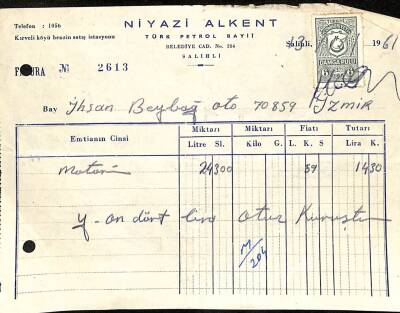 Telefon : 1056
Kırveli köyü benzin satış istasyonu
NİYAZİ ALKENT
TÜRK PETROL BAYİİ
BELEDİYE CAD. No. 204
SALİHLİ
Salihli, 13 1961
DAMGA PULU
FATURA № 2613
Bay İhsan Beybağ oto 70859 İzmir
Emtianın Cinsi Miktarı Miktarı Fiatı Tutarı
Litre Sl. Kilo G. L. K. S Lira K.
Motorin 24300 59 1430
Y - On dört lira otuz kuruştur
M/204